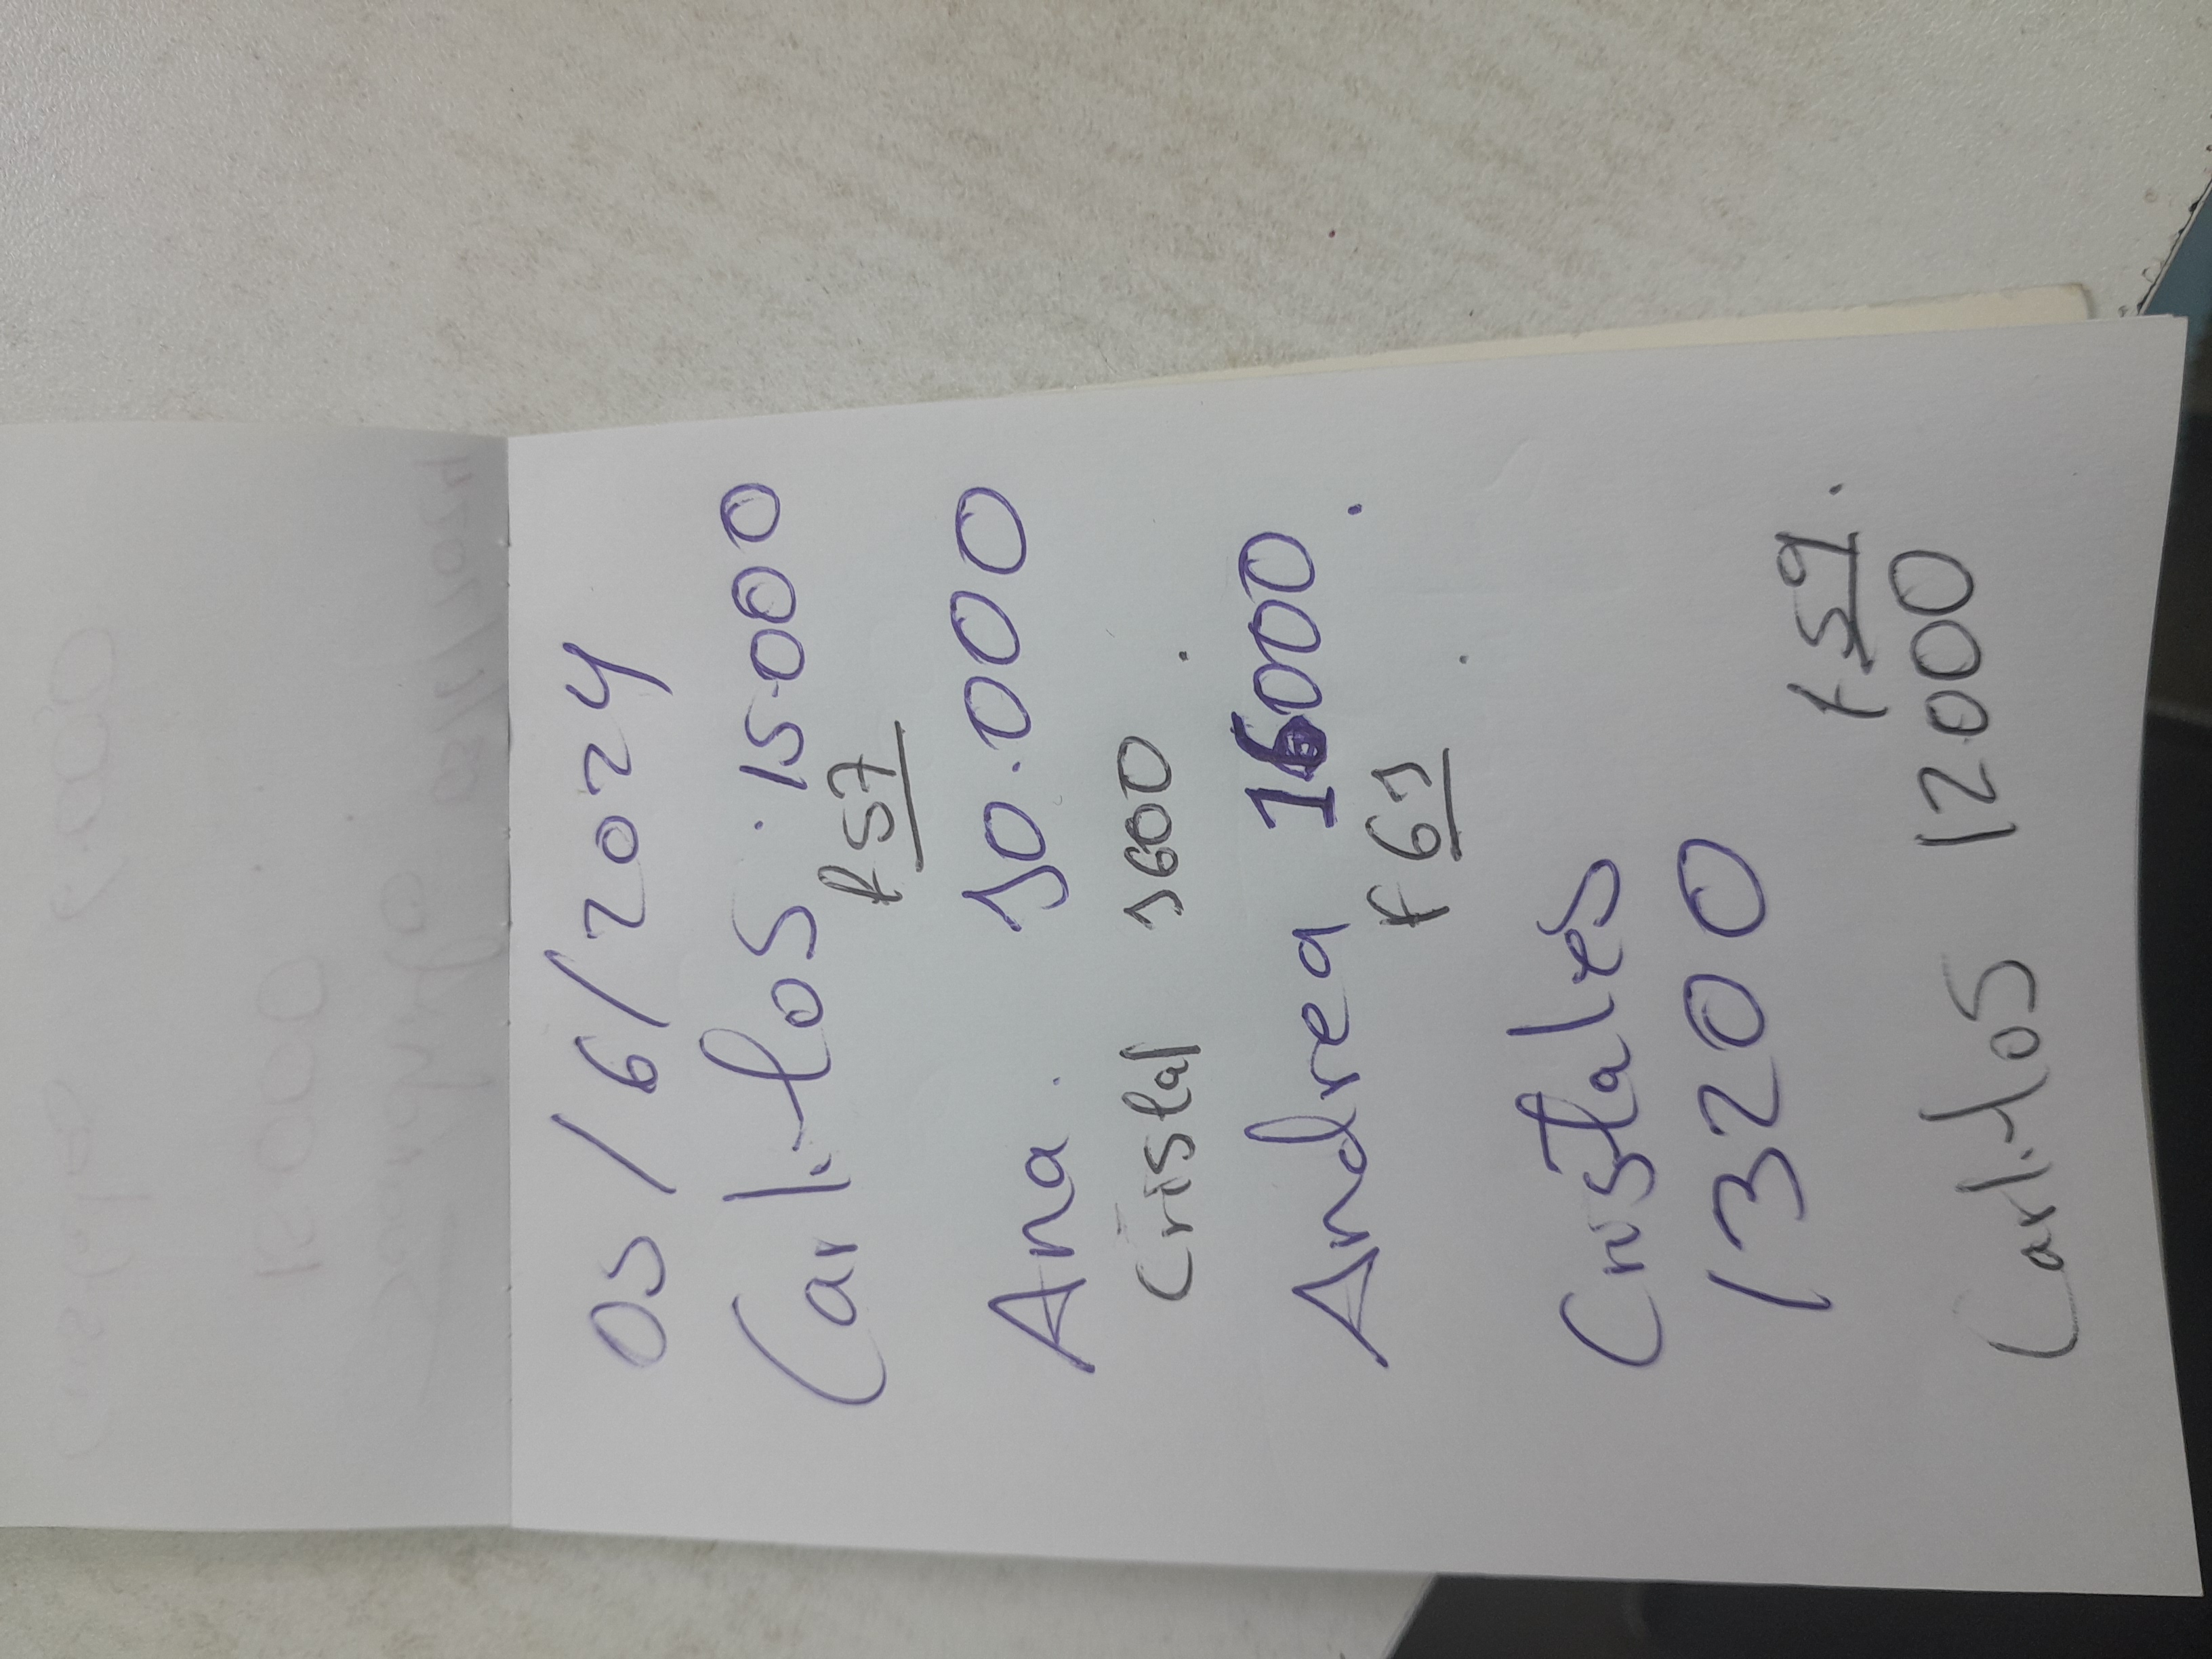 05/6/2024
Carlitos 15000
F 57
Ana. 10.000
Cristal 1600
Andrea 16000
F 61
Cristales
13200
F 59
Carlitos 12000